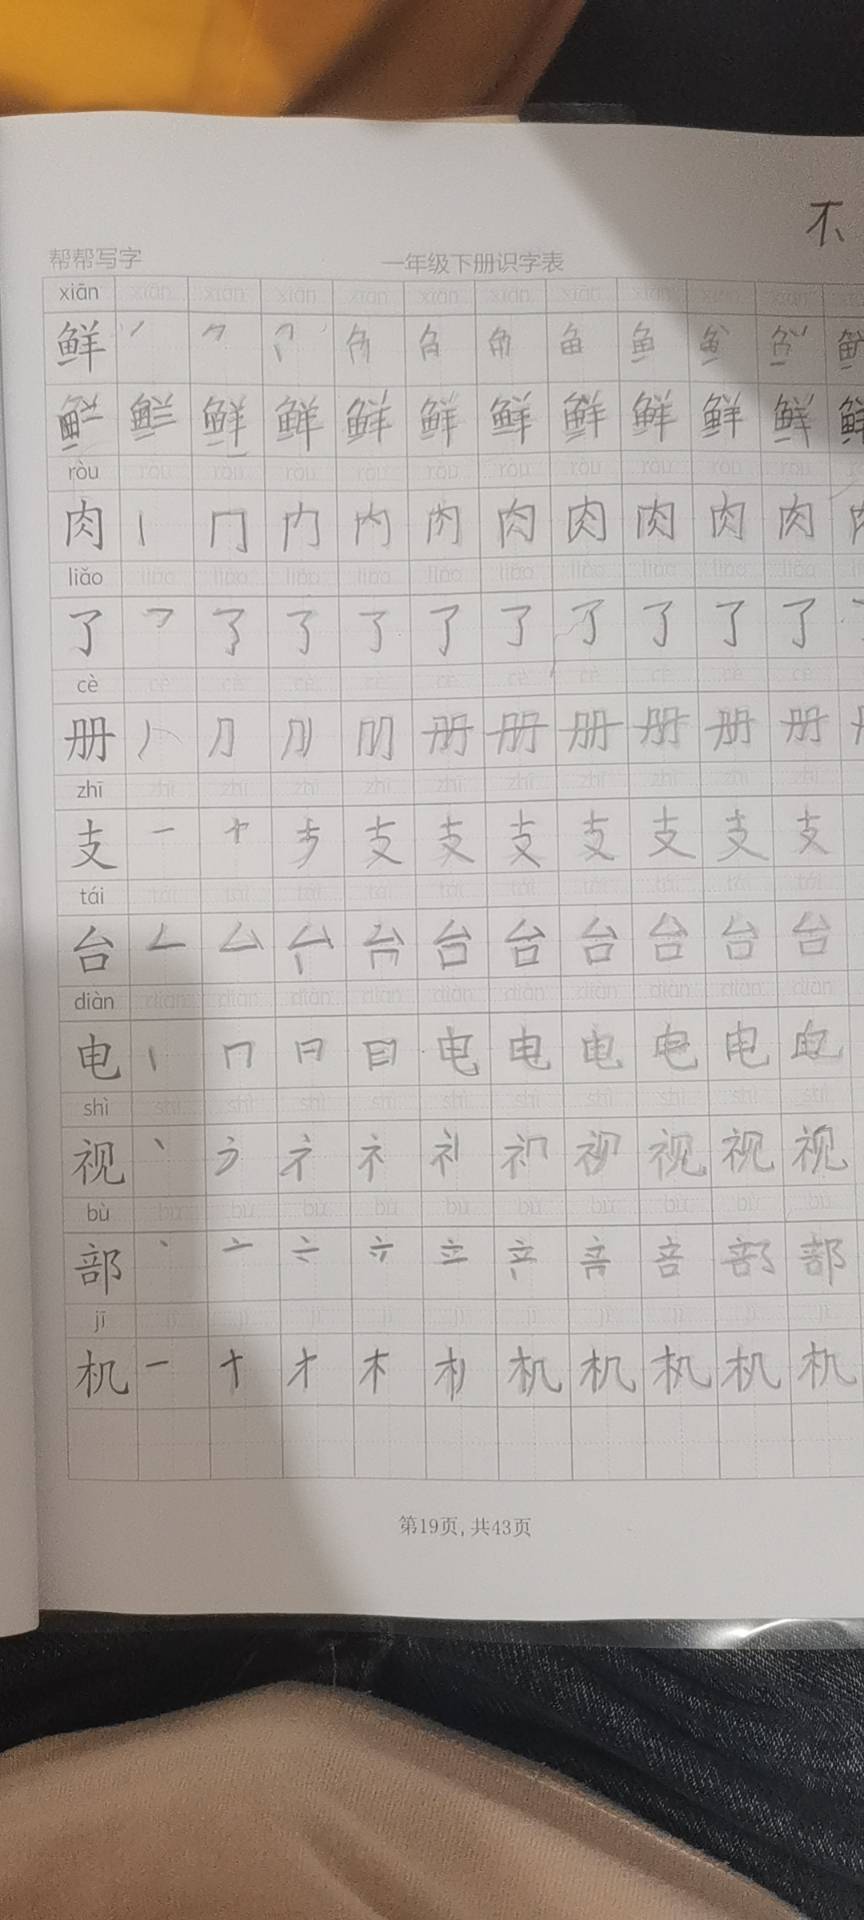 不
帮帮写字 一年级下册识字表
xiān xiān xiān xiān xiān xiān xiān xiān xiān xiān xiān
鲜
鲜 鲜 鲜 鲜 鲜 鲜 鲜 鲜 鲜
ròu ròu ròu ròu ròu ròu ròu ròu ròu ròu ròu
肉 丨 冂 内 肉 肉 肉 肉 肉 肉
liǎo liǎo liǎo liǎo liǎo liǎo liǎo liǎo liǎo liǎo liǎo
了 乛 了 了 了 了 了 了 了 了 了
cè cè cè cè cè cè cè cè cè cè cè
册 丿 册 册 册 册 册 册
zhī zhī zhī zhī zhī zhī zhī zhī zhī zhī zhī
支 一 十 支 支 支 支 支 支 支
tái tái tái tái tái tái tái tái tái tái tái
台 厶 台 台 台 台 台 台
diàn diàn diàn diàn diàn diàn diàn diàn diàn diàn diàn
电 丨 冂 日 电 电 电 电 电 电
shì shì shì shì shì shì shì shì shì shì shì
视 丶 礻 视 视 视
bù bù bù bù bù bù bù bù bù bù bù
部 丶 亠 立 咅 部 部
jī jī jī jī jī jī jī jī jī jī jī
机 一 十 才 木 机 机 机 机 机
第19页, 共43页